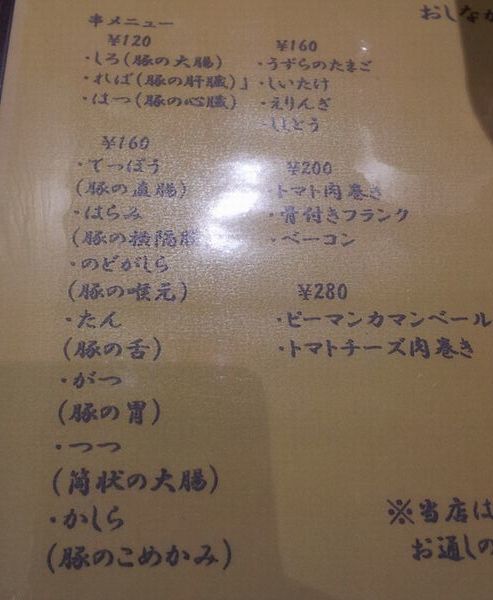 串メニュー
¥120
・しろ(豚の大腸)
・ればー(豚の肝臓)
・はつ(豚の心臓)
¥160
・てっぽう
(豚の直腸)
・はらみ
(豚の横隔膜
・のどがしら
(豚の喉元)
・たん
(豚の舌)
・がつ
(豚の胃)
・つつ
(筒状の大腸)
・かしら
(豚のこめかみ)
おしなが
¥160
・うずらのたまご
・しいたけ
・えりんぎ
・ししとう
¥200
・トマト肉巻き
・骨付きフランク
・ベーコン
¥280
・ピーマンカマンベール
・トマトチーズ肉巻き
※当店は
お通しの